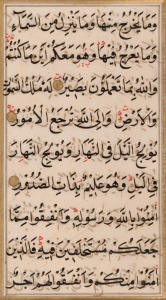 وَمَا يَخْرُجُ مِنْهَا وَمَا يَنْزِلُ مِنَ السَّمَاءِ
وَمَا يَعْرُجُ فِيهَا وَهُوَ مَعَكُمْ أَيْنَ مَا كُنْتُمْ
وَاللَّهُ بِمَا تَعْمَلُونَ بَصِيرٌ لَهُ مُلْكُ السَّمٰوَاتِ
وَالْأَرْضِ وَإِلَى اللَّهِ تُرْجَعُ الْأُمُورُ
يُولِجُ الَّيْلَ فِي النَّهَارِ وَيُولِجُ النَّهَارَ
فِي الَّيْلِ وَهُوَ عَلِيمٌ بِذَاتِ الصُّدُورِ
اٰمِنُوا بِاللَّهِ وَرَسُولِهِ وَأَنْفِقُوا مِمَّا
جَعَلَكُمْ مُسْتَخْلَفِينَ فِيهِ فَالَّذِينَ
اٰمَنُوا مِنْكُمْ وَأَنْفَقُوا لَهُمْ أَجْرٌ